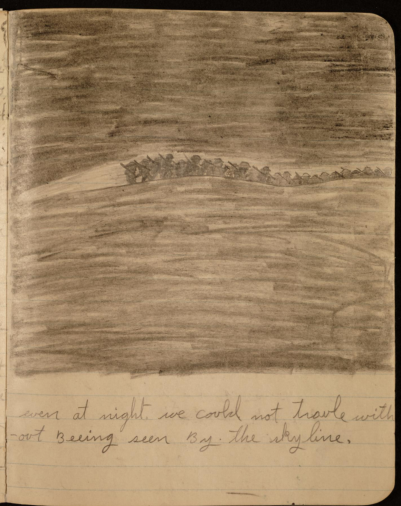 even at night we could not travle with
-out Beeing seen By. the skyline.